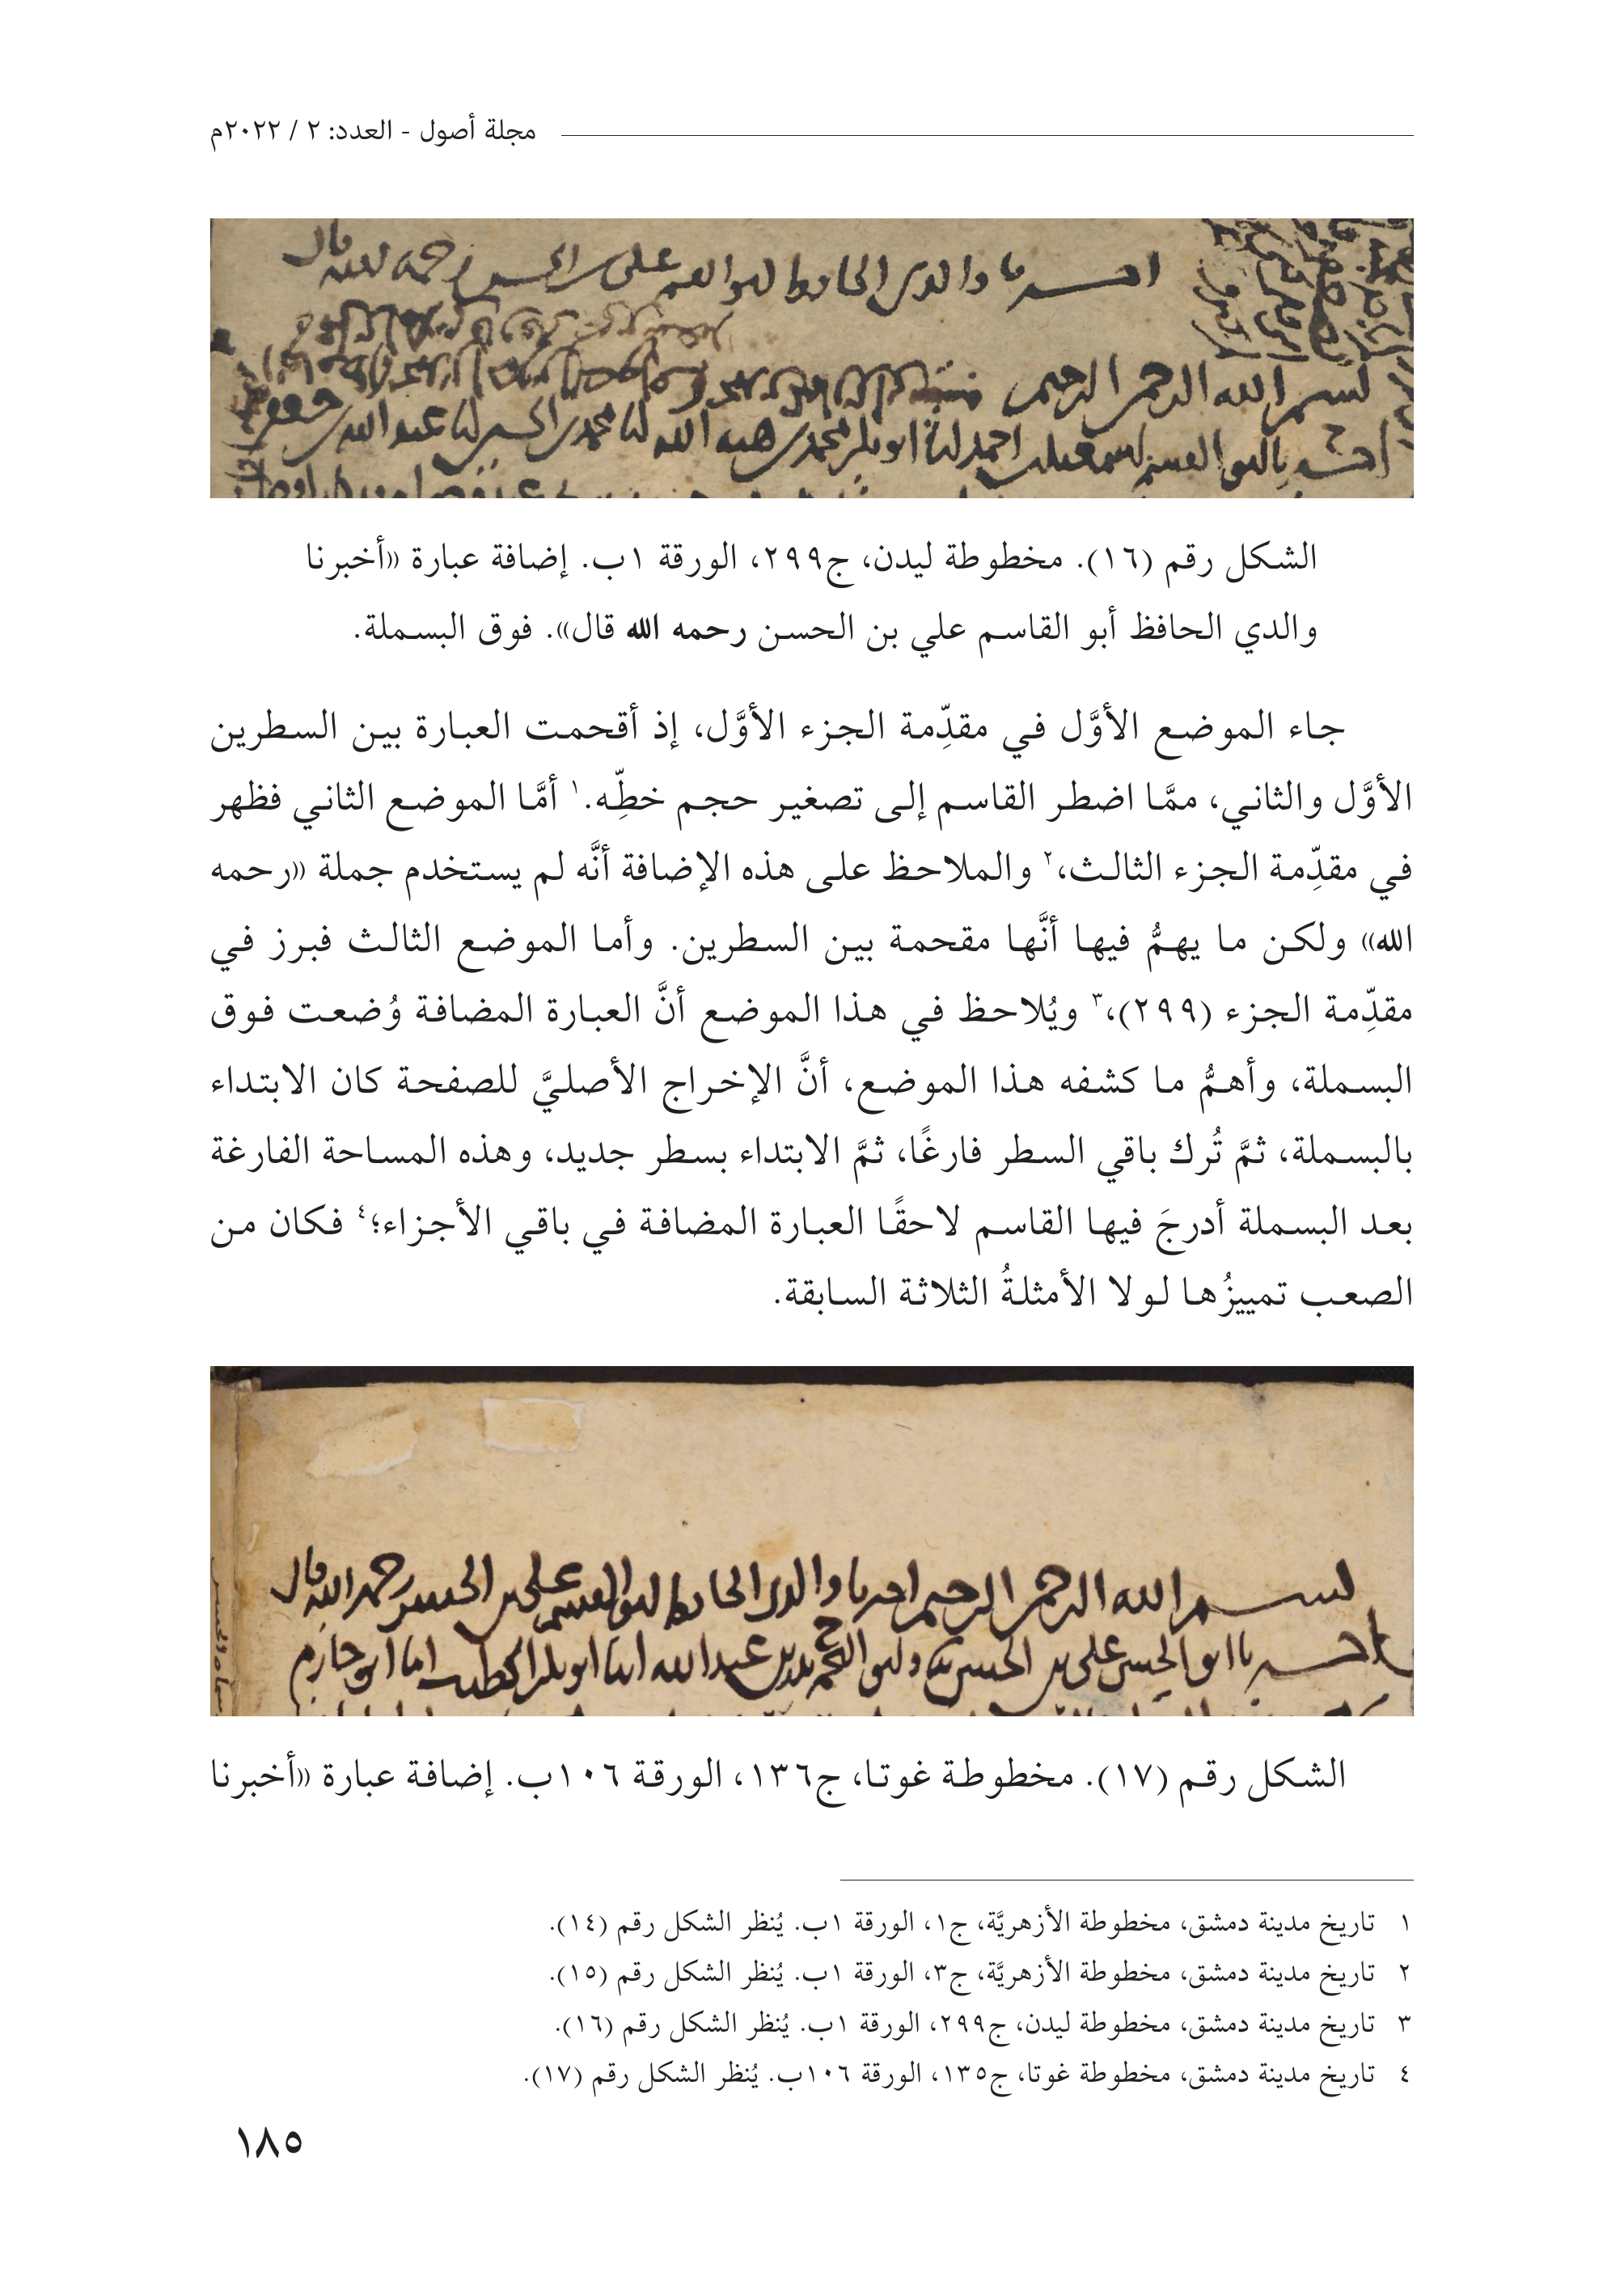 مجلة أصول - العدد: ٢ / ٢٠٢٢م
والدى الحافظ ابو القسم على بن الحسن رحمه الله قال
بسم الله الرحمن الرحيم
الشكل رقم (١٦). مخطوطة ليدن، ج٢٩٩، الورقة ١ب. إضافة عبارة «أخبرنا
والدي الحافظ أبو القاسم علي بن الحسن رحمه الله قال». فوق البسملة.
جاء الموضع الأوَّل في مقدِّمة الجزء الأوَّل، إذ أقحمت العبارة بين السطرين
الأوَّل والثاني، ممَّا اضطر القاسم إلى تصغير حجم خطِّه.١ أمَّا الموضع الثاني فظهر
في مقدِّمة الجزء الثالث،٢ والملاحظ على هذه الإضافة أنَّه لم يستخدم جملة «رحمه
الله» ولكن ما يهمُّ فيها أنَّها مقحمة بين السطرين. وأما الموضع الثالث فبرز في
مقدِّمة الجزء (٢٩٩)،٣ ويُلاحظ في هذا الموضع أنَّ العبارة المضافة وُضعت فوق
البسملة، وأهمُّ ما كشفه هذا الموضع، أنَّ الإخراج الأصليَّ للصفحة كان الابتداء
بالبسملة، ثمَّ تُرك باقي السطر فارغًا، ثمَّ الابتداء بسطر جديد، وهذه المساحة الفارغة
بعد البسملة أدرجَ فيها القاسم لاحقًا العبارة المضافة في باقي الأجزاء؛٤ فكان من
الصعب تمييزُها لولا الأمثلةُ الثلاثة السابقة.
بسم الله الرحمن الرحيم اخبرنا والدى الحافظ ابو القسم على بن الحسن رحمه الله قال
الشكل رقم (١٧). مخطوطة غوتا، ج١٣٦، الورقة ١٠٦ب. إضافة عبارة «أخبرنا
١ تاريخ مدينة دمشق، مخطوطة الأزهريَّة، ج١، الورقة ١ب. يُنظر الشكل رقم (١٤).
٢ تاريخ مدينة دمشق، مخطوطة الأزهريَّة، ج٣، الورقة ١ب. يُنظر الشكل رقم (١٥).
٣ تاريخ مدينة دمشق، مخطوطة ليدن، ج٢٩٩، الورقة ١ب. يُنظر الشكل رقم (١٦).
٤ تاريخ مدينة دمشق، مخطوطة غوتا، ج١٣٥، الورقة ١٠٦ب. يُنظر الشكل رقم (١٧).
١٨٥